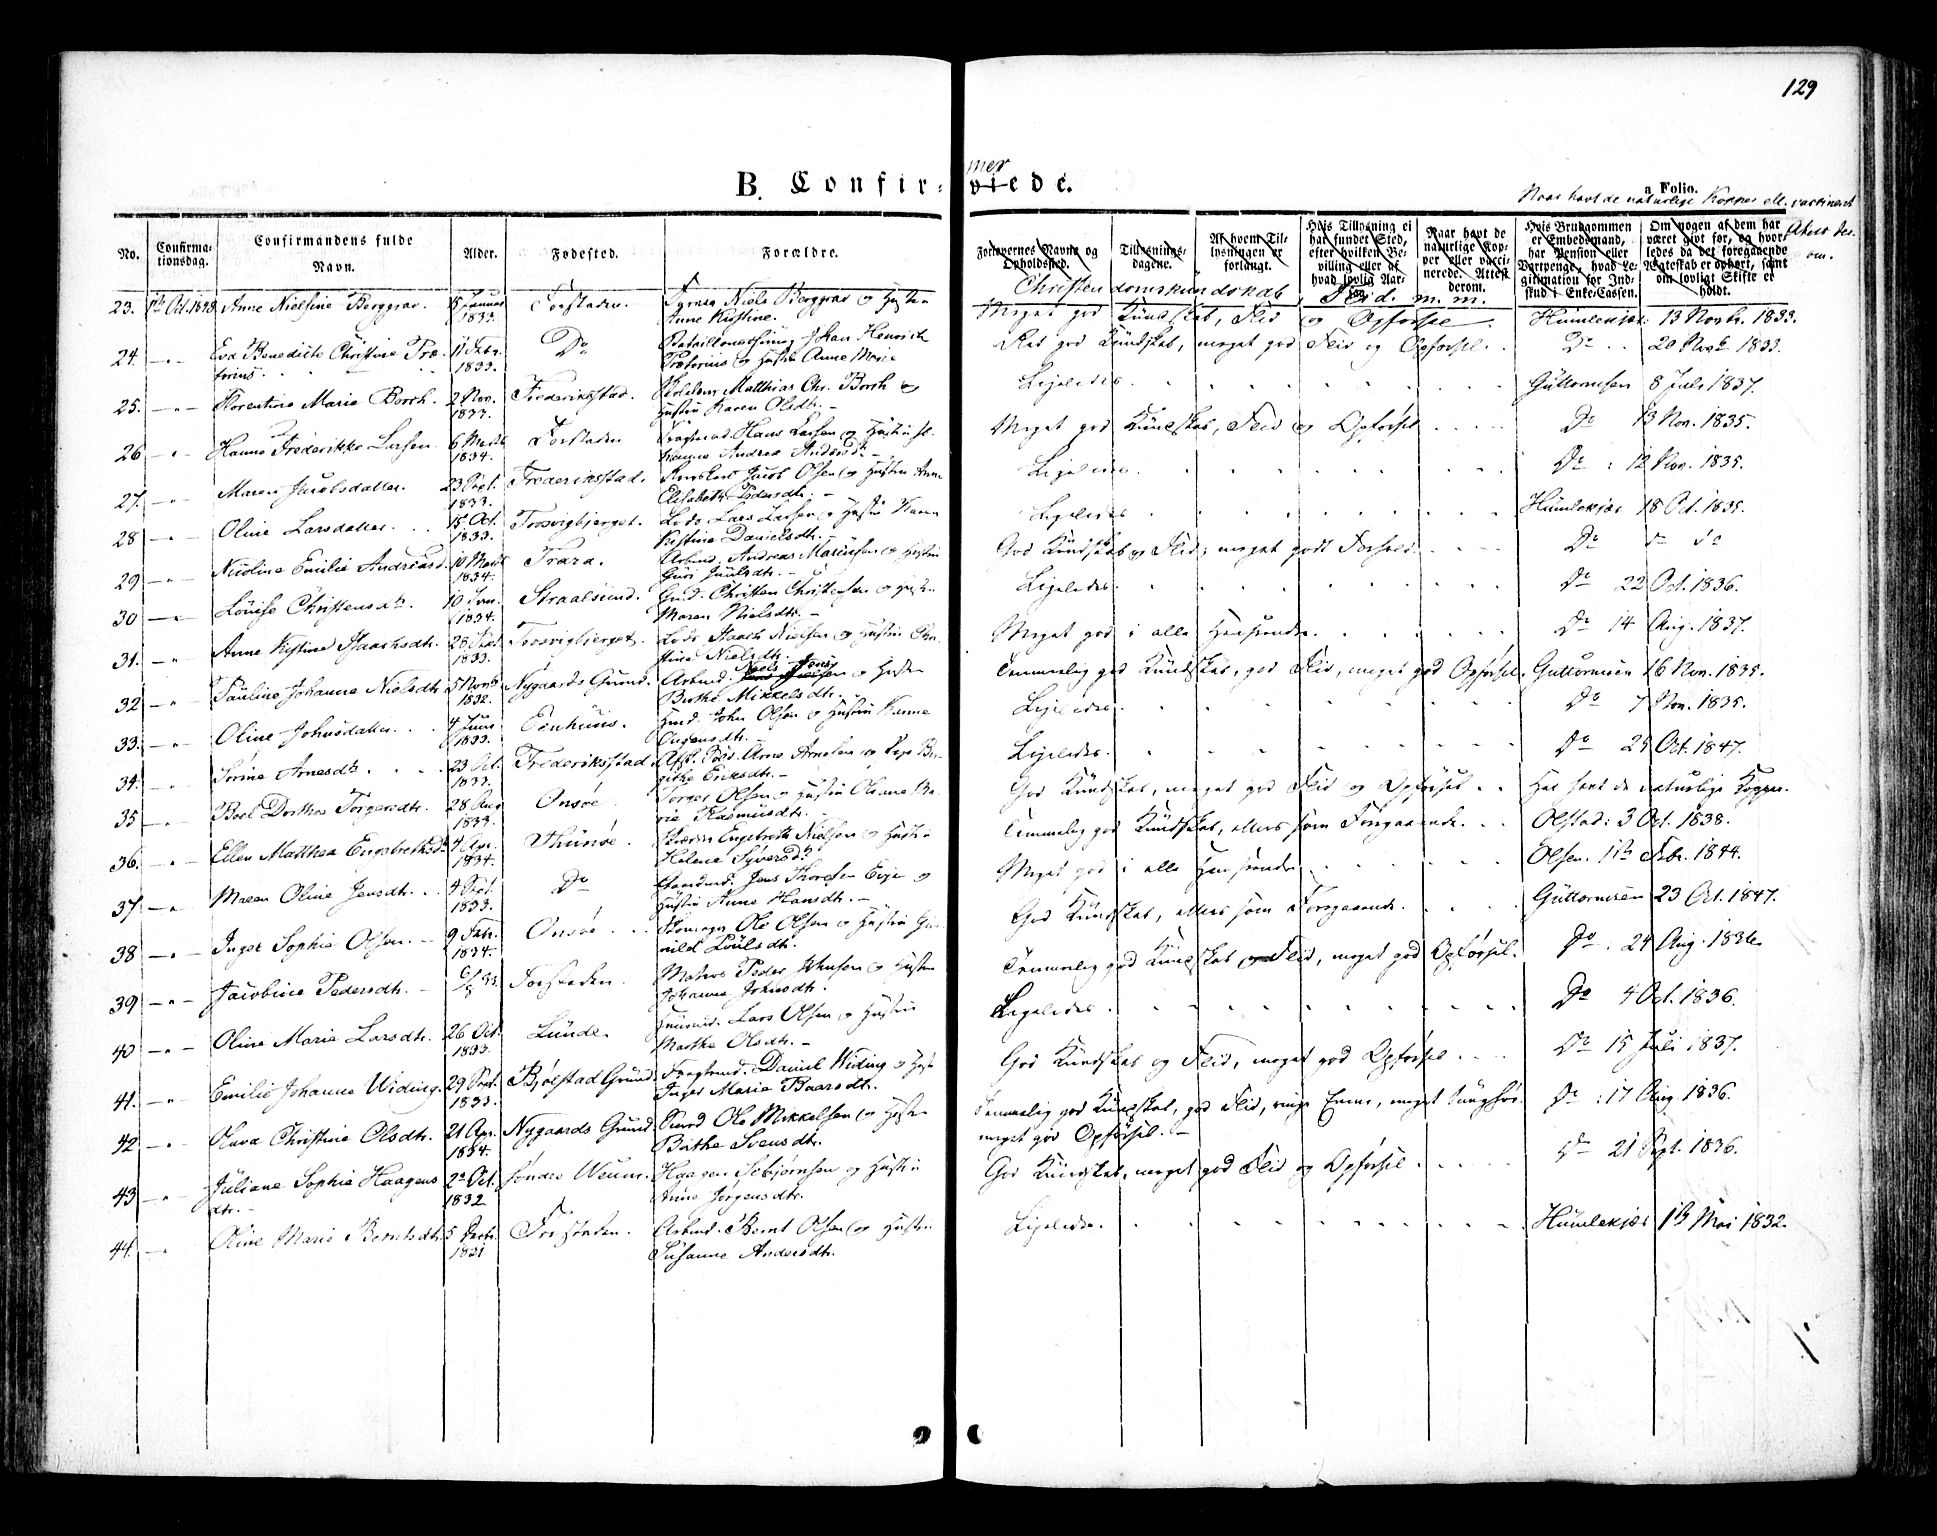 129
mer
B. Confir= viede.
a Folio.
Naar havt de naturlige Kopper ell. vaccineret
No.
Confirma-
tionsdag.
Confirmandens fulde
Navn.
Alder.
Fødested.
Forældre.
Forlovernes Navne og
Opholdssted.
Tillysnings-
dagene.
Af hvem Til-
lysningen er
forlangt.
Hvis Tillysning ei
har fundet Sted,
efter hvilken Be-
villing eller af
hvad lovlig Aar-
sag.
Naar havt de
naturlige Kop-
per eller vacci-
nerede. Attest
derom.
Hvis Brudgommen
er Embedsmand,
har Pension eller
Vartpenge, hvad Le-
gitimation for Ind-
skud i Enke-Cassen.
Om nogen af dem har
været gift før, og hvor-
ledes da det foregaaende
Ægteskab er ophørt, samt
om lovligt Skifte er
holdt.
om.
Christendomskundskab Flid. m. m.
23. 1ste Oct. 1848 Anne Nielsine Berggrav 15 Januar 1833. Forstaden. Niels Berggrav og Hustru
Anne Kirstine.
Meget god Kundskab, Flid og Opførsel. Humlekjær 13 Novb. 1833.
24. Eva Benedicte Christine Præ-
torius. 11 Febr. 1833. Do Johan Henrich
Prætorius og Hustru Anne Marie
god Kundskab, meget god Flid og Opførsel. Do 20 Novb 1833.
25. Florentine Marie Borch. 2 Nov. 1833. Frederikstad. Matthias Chr. Borch og
Hustru Karen Olsdtr.
Ligeledes. Guttormsen 8 Juli 1837.
26 Hanne Frederikke Larsen 6 Marts 1834. Forstaden Hans Larsen og Hustru
Andrea
Meget god Kundskab, Flid og Opførsel Do 13 Nov. 1835.
27. Maren Jacobsdatter. 23 Sept. 1833. Frederikstad. Jacob Olsen og Hustru Anne
Elisabeth Pedersdtr.
Ligeledes Do 12 Nov. 1835.
28 Oline Larsdatter. 15 Oct. 1833. Trosvigbjerget. Lods Lars Larsen og Hustru Karen
Kirstine Danielsdtr.
Ligeledes Humlekjær 18 Oct. 1835.
29 Nicoline Emilie Andreasd. 10 Marts 1834. Trara. Arbmd. Andreas Mariusen og Hustru
Guri Juulsdtr.
God Kundskab og Flid; meget godt Forhold. Do do do
30 Louise Christensdtr. 10 Jan. 1834. Straalsund. Christen Christensen og Hustru
Maren Nielsdtr.
Ligeledes. Do 22 Oct. 1836.
31. Anne Kistine Staachsdtr. 28 1833. Trosvigbjerget. Lods Staach Nielsen og Hustru
Nielsdtr.
Meget god i alle Henseender. Do 14 Aug. 1837.
32 Pauline Johanne Nielsdtr. 5 Novb 1832. Nygaards Grund. Arbmd. Niels og Hustru
Berthe Mikkelsdtr.
Temmelig god Kundskab, god Flid, meget god Opførsel. Guttormsen 16 Nov. 1835.
33. Oline Johnsdatter 4 1833. Eenhuus. John Olsen og Hustru Karine
Ligeledes. Do 7 Nov. 1835.
34. Sørine Arnesdtr. 23 Oct. 1833. Frederikstad Afsk. Sold. Arne Arnesen og
Eriksdtr.
Ligeledes. Do 25 Oct. 1847.
35 Boel Dorthea Torgersdtr. 28 Aug 1833. Onsøe Torger Olsen og Hustru
Rasmusdtr.
God Kundskab, meget god Flid og Opførsel Har havt de naturlige Kopper.
36. Ellen Matthea Engebrethsdtr 4 Apr. 1834. Thunøe. Engebreth Nielsen og Hustru
Helene Syversdtr
Temmelig god Kundskab, ellers som Foregaaende. Olstad: 3 Oct. 1838.
37 Maren Oline Jensdtr. 4 Sept. 1833. Do Jens Thoresen og
Hustru Anne Hansdtr.
Meget god i alle Henseender Olsen. 11te Febr. 1844.
38 Inger Sophie Olsen. 9 Febr. 1834. Onsøe Ole Olsen og Hustru
God Kundskab, ellers som Foregaaende. Guttormsen 23 Oct. 1847.
39 Jacobine Pedersdtr. Forstaden Matros Peder Johnsen og Hustru
Johanne Johnsdtr.
Temmelig god Kundskab og Flid, meget god Opførsel. Do 24 Aug. 1836.
40 Oline Marie Larsdtr. 26 Oct. 1833. Lunde Lars Olsen og Hustru
Marthe Olsdtr.
Ligeledes. Do 4 Oct. 1836.
41. Emilie Johanne Widing. 29 Sept. 1833. Bjølstad Grund. Daniel Widing og Hustru
Inger Marie Baarsdtr.
God Kundskab og Flid, meget god Opførsel Do 15 Juli 1837.
42 Olava Christine Olsdtr. 21 Apr. 1834. Nygaards Grund Ole Mikkelsen og Hustru
Birthe Svensdtr.
Temmelig god Kundskab, god Flid, ringe Evne, meget
meget god Opførsel. Do 17 Aug. 1836.
43 Juliane Sophie Haagens
dtr. 2 Oct. 1832 Søndre Haagen og Hustru
Anne Jørgensdtr.
God Kundskab, meget god Flid og Opførsel. Do 21 Sept. 1836.
44. Oline Marie Berntsdtr. 5 1831 Forstaden. Arbmd. Bernt Olsen og Hustru
Susanne Andersdtr.
Ligeledes. Humlekjær 18 Mai 1832.